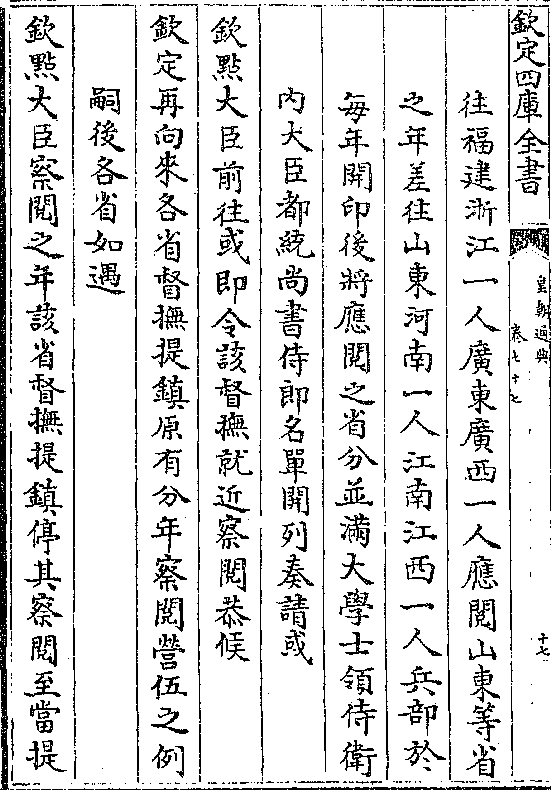 欽定四庫全書
皇朝通典
卷七十七
十七
往福建浙江一人廣東廣西一人應閱山東等省
之年差往山東河南一人江南江西一人兵部於
每年開印後將應閱之省分並滿大學士領侍衛
內大臣都統尚書侍郎名單開列奏請或
欽點大臣前往或即令該督撫就近察閱恭候
欽定再向來各省督撫提鎮原有分年察閱營伍之例
嗣後各省如遇
欽點大臣察閱之年該省督撫提鎮停其察閱至當提